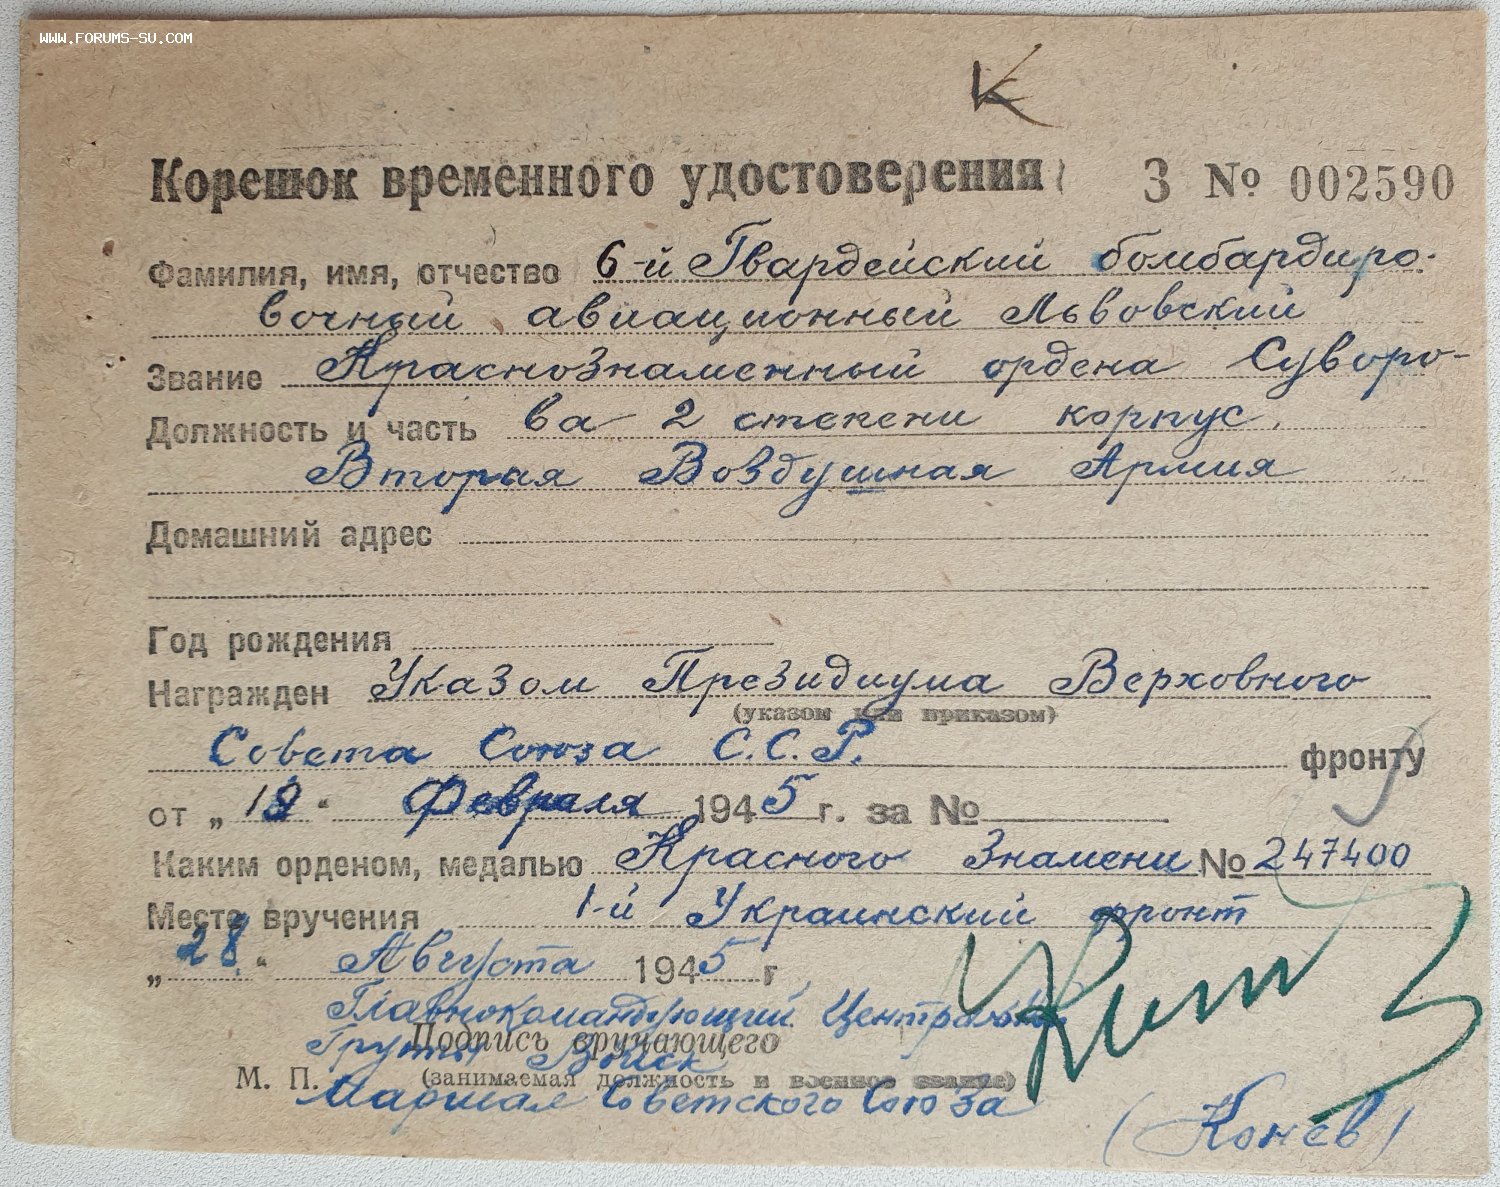 WWW.FORUMS-SU.COM
К
Корешок временного удостоверения З № 002590
Фамилия, имя, отчество 6-й Гвардейский бомбардиро-
вочный авиационный Львовский
Звание Краснознаменный ордена Суворо-
Должность и часть ва 2 степени корпус.
Вторая Воздушная Армия
Домашний адрес
Год рождения
Награжден Указом Президиума Верховного
(указом или приказом)
Совета Союза С.С.Р. фронту
от „ " Февраля 1945 г. за №
Каким орденом, медалью Красного Знамени № 247400
Место вручения 1-й Украинский фронт
„28" Августа 1945 г
Главнокомандующий Центральной
Подпись вручающего
Группы Войск
М. П. (занимаемая должность и военное звание)
Маршал Советского Союза
(Конев)